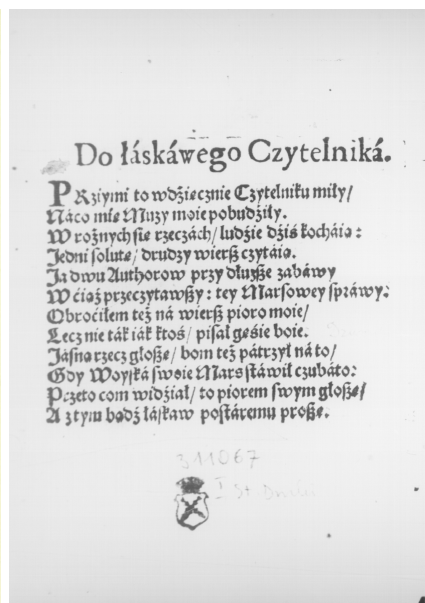 Do łáskáwego Czytelniká.
PRziymi to wdźiecznie Czytelniku miły/
Náco mię Muzy moie pobudźiły.
W rożnych się rzeczách/ ludźie dźiś kocháią:
Jedni solutę/ drudzy wierß czytáią.
Ja dwu Authorow przy dłużße zabáwy
W ciąż przeczytawßy: tey Marsowey spráwy:
Obroćiłem też ná wierß pioro moie/
Lecz nie ták iák ktoś/ pisał gęśie boie.
Jásną rzecz głoßę/ bom też pátrzył ná to/
Gdy Woyská swoie Mars stáwił czubáto:
Przeto com widźiał/ to piorem swym głoßę/
A z tym bądź łáskaw postáremu proßę.
311067
I